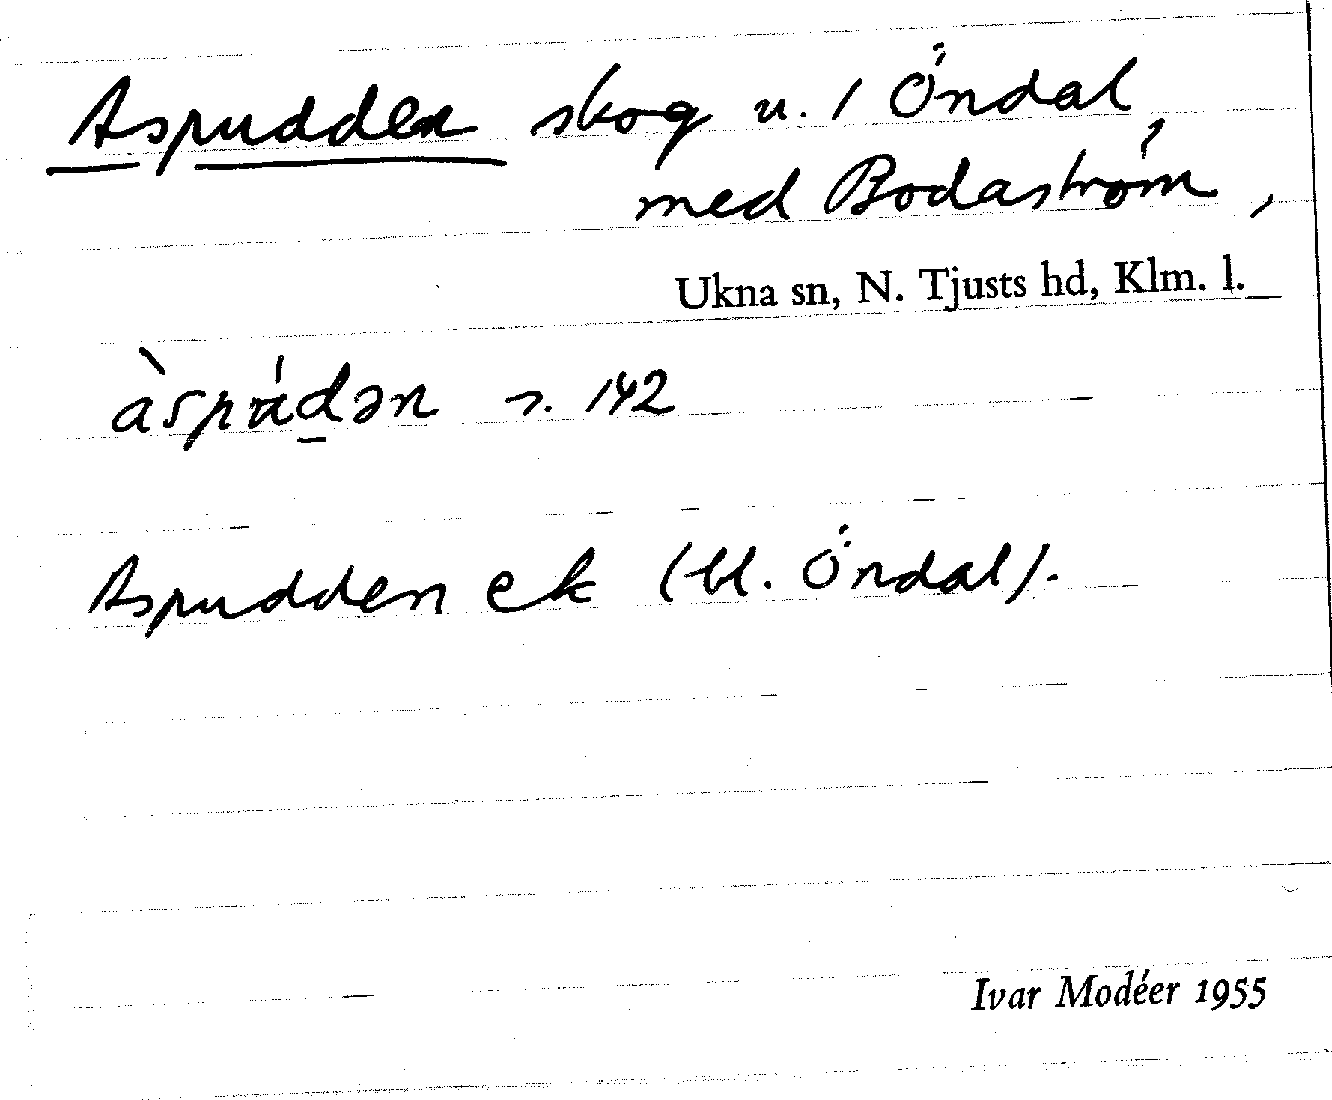 Aspudden skog u. / Öndal
med Bodaström,
Ukna sn, N. Tjusts hd, Klm. l.
142
Aspudden ek (bl. Öndal).
Ivar Modéer 1955